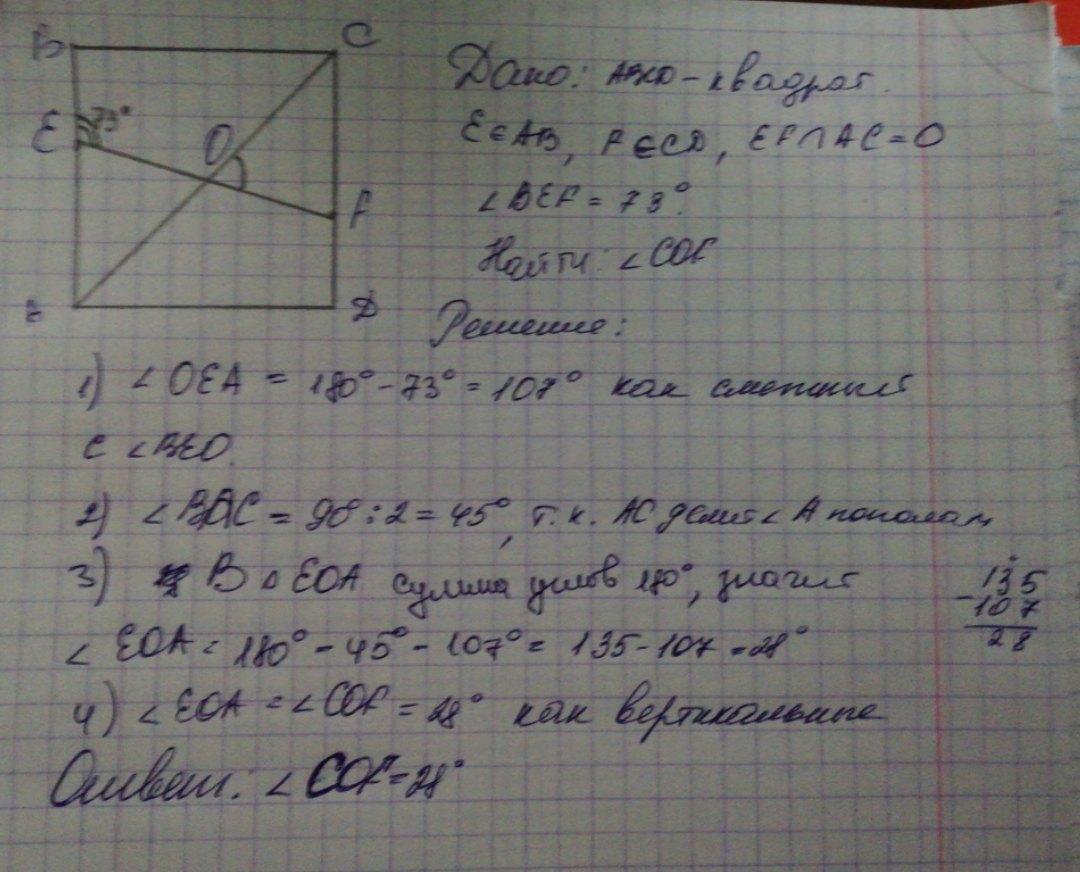 B C
Дано: ABCD - квадрат.
E 73°
O
E∈AB, F∈CD, EF∩AC=O
F
∠BEF = 73°.
Найти: ∠COF
D
Решение:
1) ∠OEA = 180° - 73° = 107° как смежный
с ∠BEO.
2) ∠BAC = 90° : 2 = 45°, т.к. AC делит ∠A пополам
3) В △ EOA сумма углов 180°, значит
∠ EOA = 180° - 45° - 107° = 135 - 107 = 28°
135
- 107
28
4) ∠EOA = ∠COF = 28° как вертикальные
Ответ: ∠COF = 28°